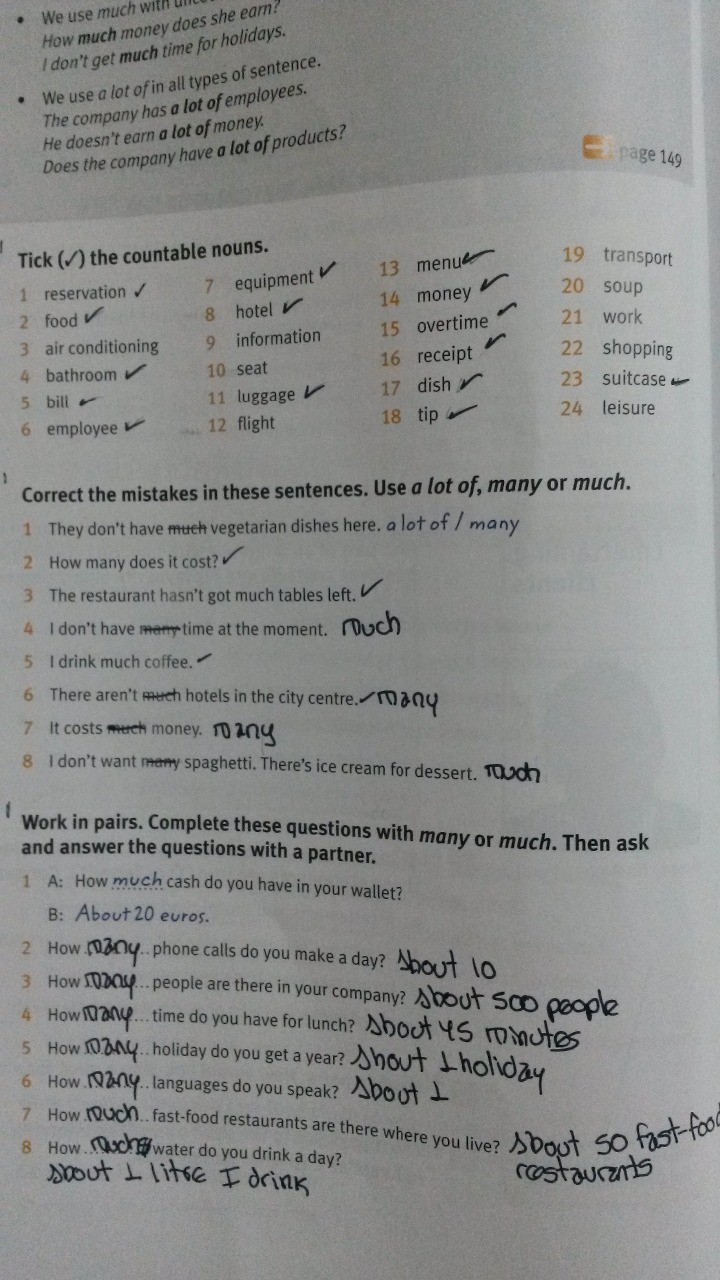 • We use much with
How much money does she earn?
I don't get much time for holidays.
• We use a lot of in all types of sentence.
The company has a lot of employees.
He doesn't earn a lot of money.
Does the company have a lot of products?
page 149
Tick (✓) the countable nouns.
1 reservation ✓
2 food ✓
3 air conditioning
4 bathroom ✓
5 bill ✓
6 employee ✓
7 equipment ✓
8 hotel ✓
9 information
10 seat
11 luggage ✓
12 flight
13 menu ✓
14 money ✓
15 overtime ✓
16 receipt ✓
17 dish ✓
18 tip ✓
19 transport
20 soup
21 work
22 shopping
23 suitcase ✓
24 leisure
Correct the mistakes in these sentences. Use a lot of, many or much.
1 They don't have much vegetarian dishes here. a lot of / many
2 How many does it cost? ✓
3 The restaurant hasn't got much tables left. ✓
4 I don't have many time at the moment. much
5 I drink much coffee. ✓
6 There aren't much hotels in the city centre. ✓ many
7 It costs much money. many
8 I don't want many spaghetti. There's ice cream for dessert. much
Work in pairs. Complete these questions with many or much. Then ask
and answer the questions with a partner.
1 A: How much cash do you have in your wallet?
B: About 20 euros.
2 How many.. phone calls do you make a day? About 10
3 How many... people are there in your company? About 500 people
4 How many... time do you have for lunch? About 45 minutes
5 How many.. holiday do you get a year? About 1 holiday
6 How many.. languages do you speak? About 1
7 How much.. fast-food restaurants are there where you live? About 50 fast-food
restaurants
8 How ..much water do you drink a day?
About 1 litre I drink